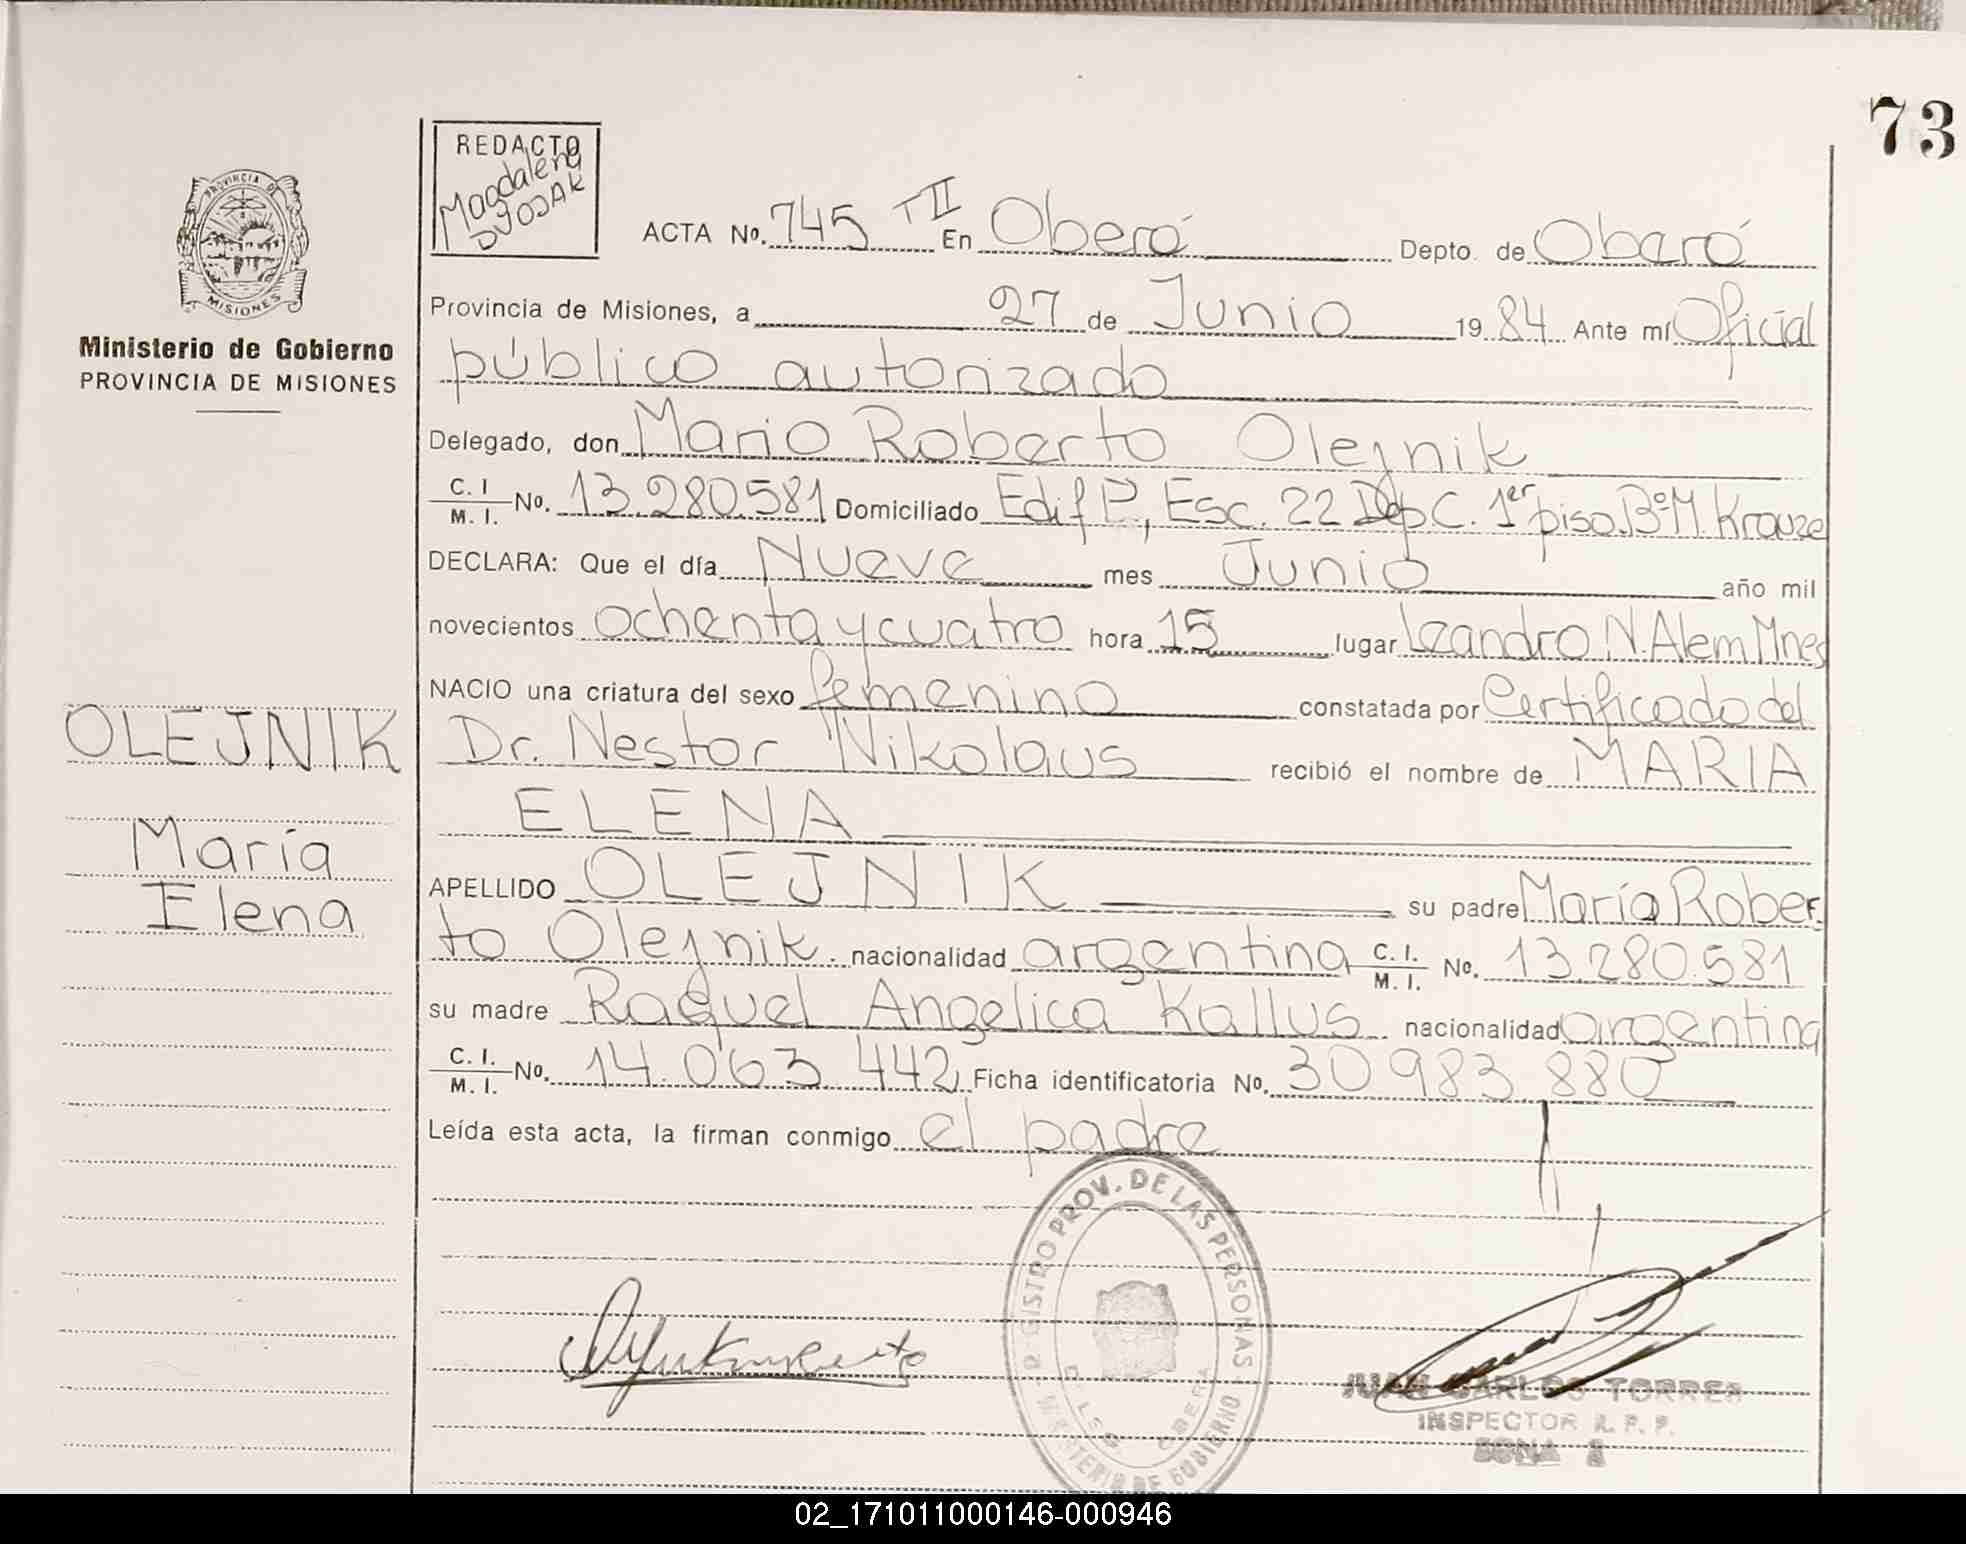 73
REDACTO
Magdalena
DUJJAK
PROVINCIA DE
MISIONES
Ministerio de Gobierno
PROVINCIA DE MISIONES
ACTA No. 745 TII En Oberá Depto. de Oberá
Provincia de Misiones, a 27 de Junio 1984 Ante mí Oficial
público autorizado
Delegado, don Mario Roberto Olejnik
C. I / M. I. No. 13.280.581 Domiciliado Edif P., Esc. 22 Dep C. 1er piso. Bº M. Krause
DECLARA: Que el día Nueve mes Junio año mil
novecientos ochenta y cuatro hora 15 lugar Leandro N. Alem Mnes
NACIO una criatura del sexo femenino constatada por Certificado del
Dr. Nestor Nikolaus recibió el nombre de MARIA
ELENA
APELLIDO OLEJNIK su padre Mario Rober
to Olejnik. nacionalidad argentina C. I. / M. I. No. 13.280.581
su madre Raquel Angelica Kallus nacionalidad argentina
C. I. / M. I. No. 14.063.442 Ficha identificatoria No. 30.983.880
Leída esta acta, la firman conmigo el padre
OLEJNIK
María
Elena
REGISTRO PROV. DE LAS PERSONAS
MINISTERIO DE GOBIERNO
OBERA
JUAN CARLOS TORRES
INSPECTOR R. P. P.
ZONA 2
02_171011000146-000946